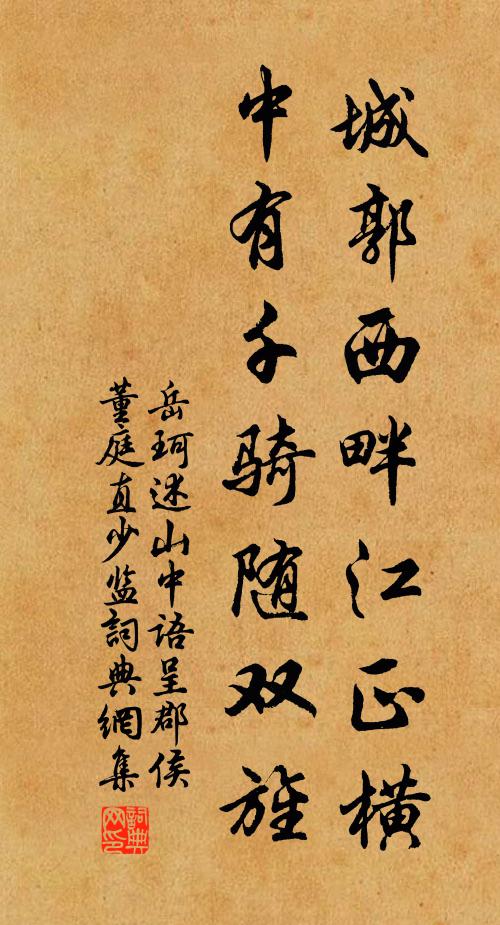 城郭西畔江正横
中有千骑随双旌
岳珂述山中语呈郡侯
董庭直少监詞典網集
詞典
网印